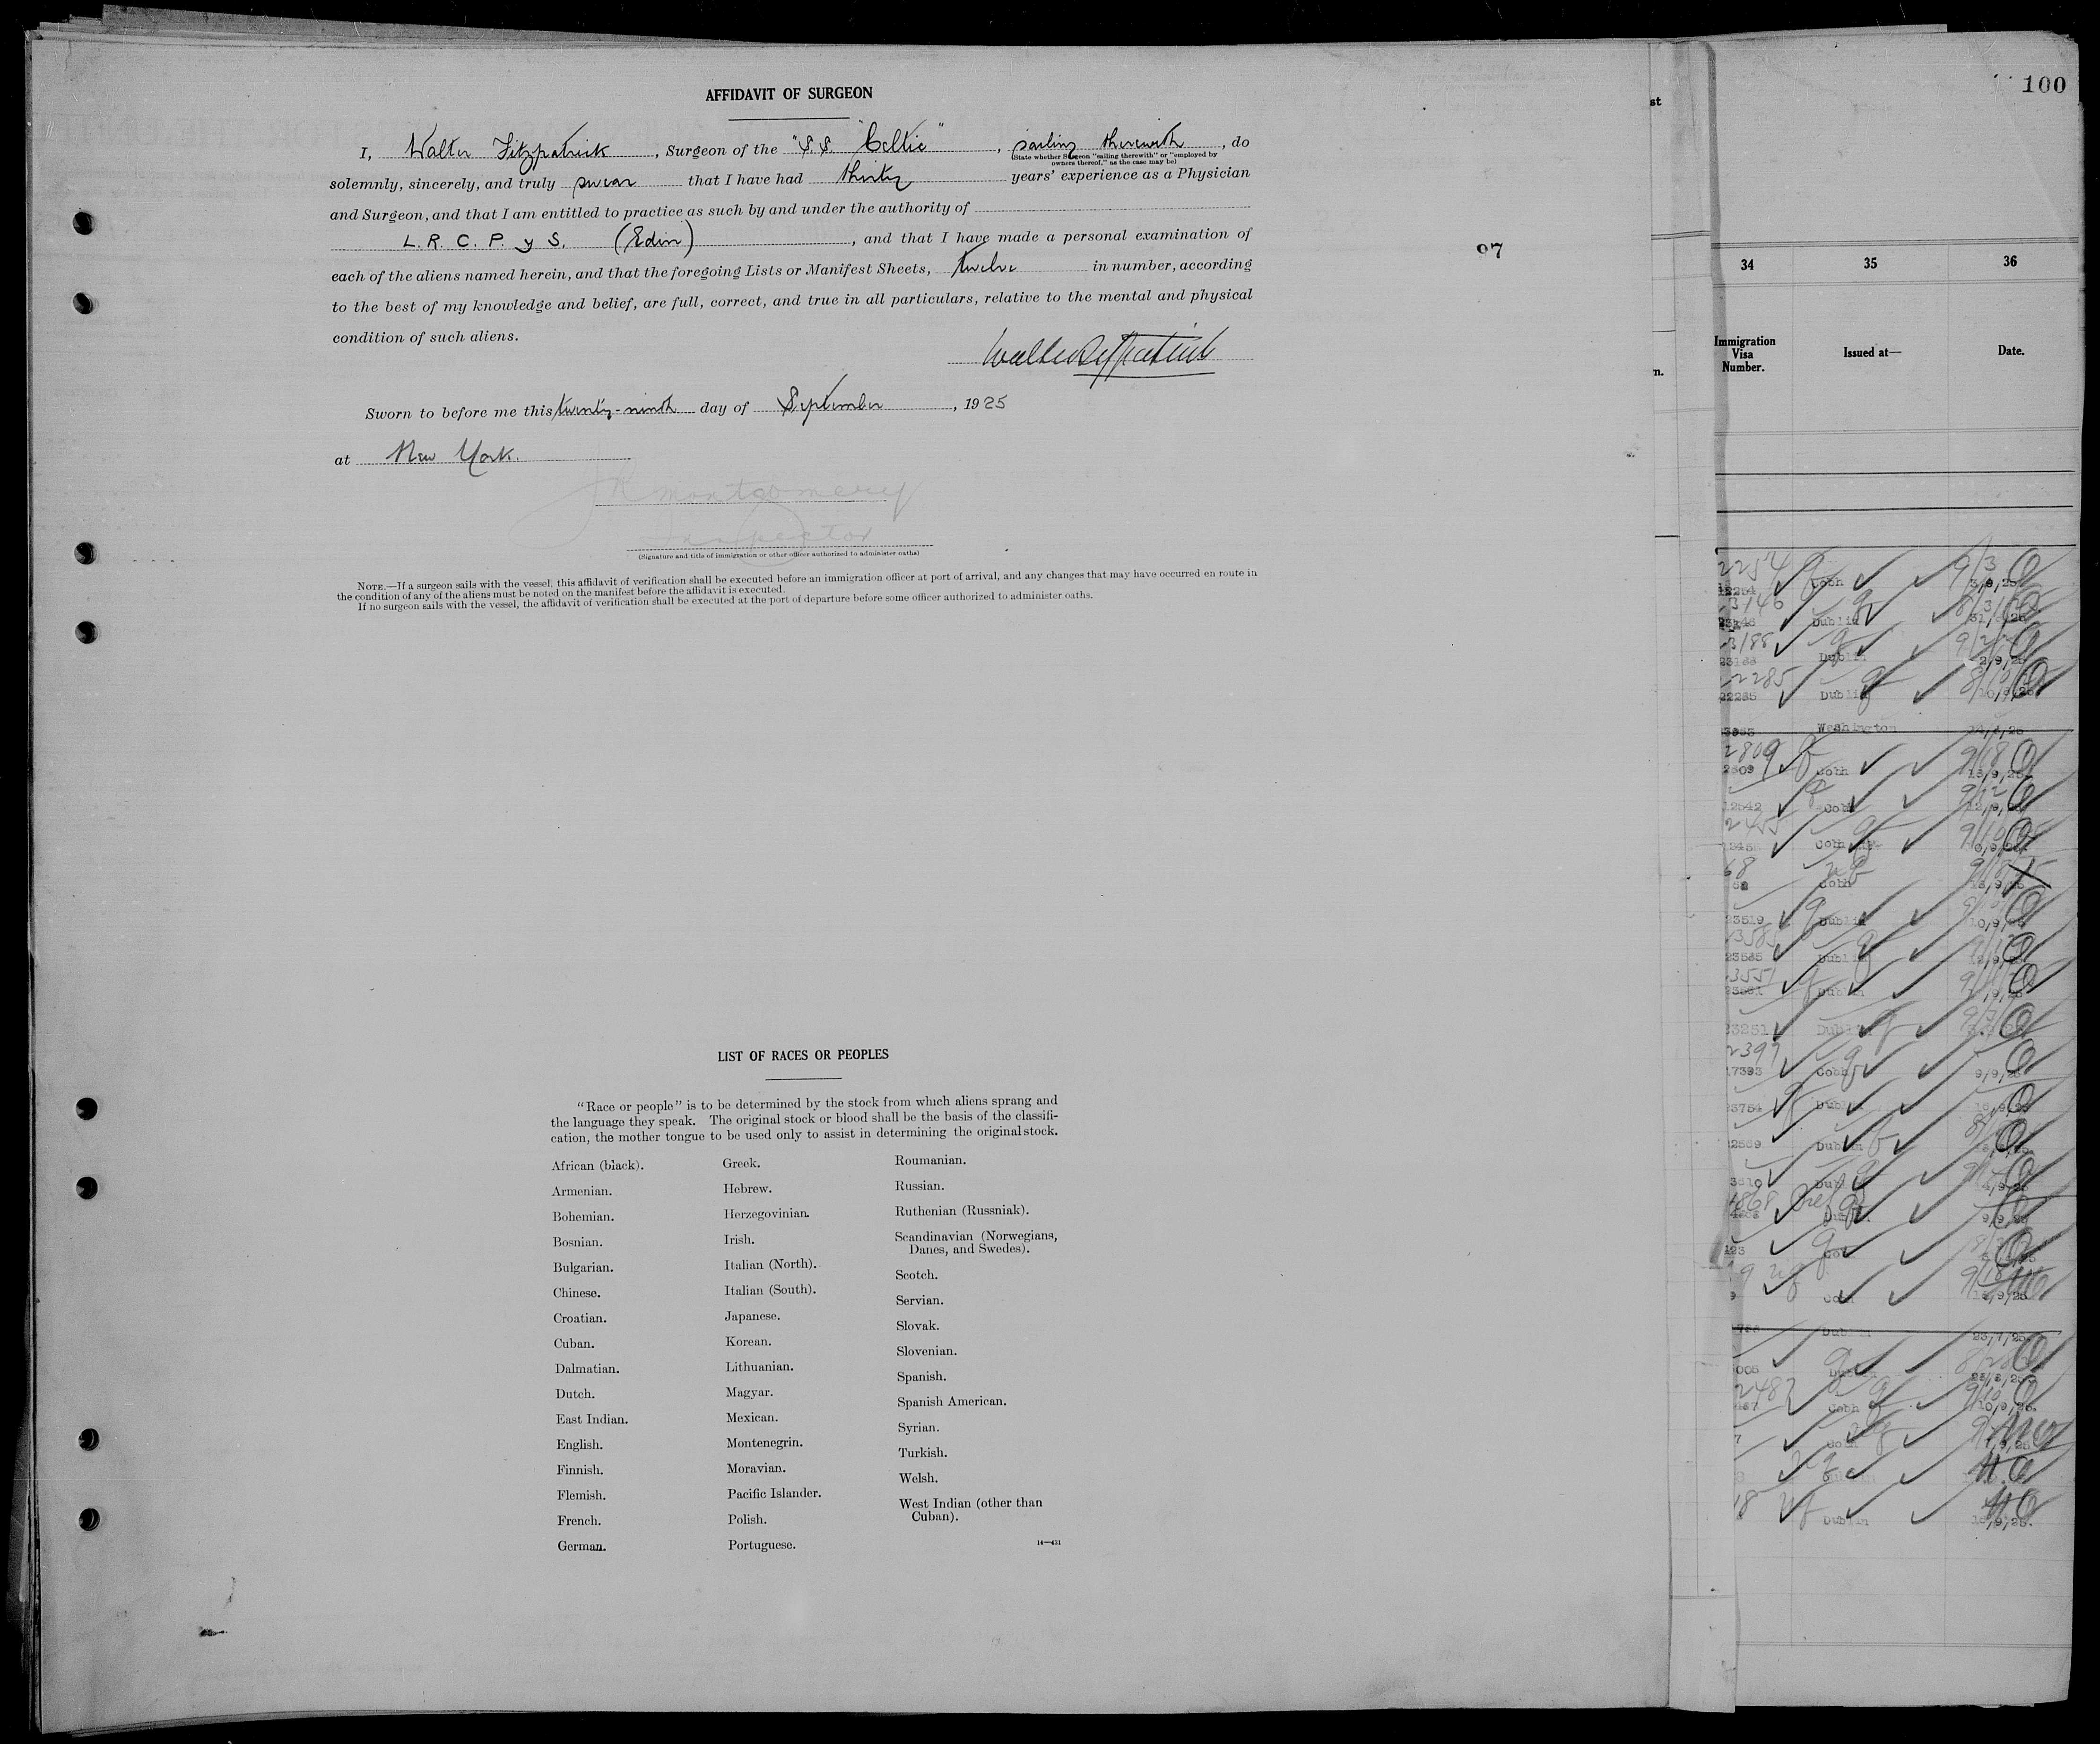 AFFIDAVIT OF SURGEON
I, Walter Fitzpatrick, Surgeon of the "S.S. "Celtic", sailing therewith, do
(State whether Surgeon "sailing therewith" or "employed by
owners thereof," as the case may be)
solemnly, sincerely, and truly swear that I have had thirty years' experience as a Physician
and Surgeon, and that I am entitled to practice as such by and under the authority of
L. R. C. P. y S. (Edin), and that I have made a personal examination of
each of the aliens named herein, and that the foregoing Lists or Manifest Sheets, twelve in number, according
to the best of my knowledge and belief, are full, correct, and true in all particulars, relative to the mental and physical
condition of such aliens.
Walter Fitzpatrick
Sworn to before me this twenty-ninth day of September, 1925
at New York.
JR Montgomery
Inspector
(Signature and title of immigration or other officer authorized to administer oaths)
NOTE.—If a surgeon sails with the vessel, this affidavit of verification shall be executed before an immigration officer at port of arrival, and any changes that may have occurred en route in
the condition of any of the aliens must be noted on the manifest before the affidavit is executed.
If no surgeon sails with the vessel, the affidavit of verification shall be executed at the port of departure before some officer authorized to administer oaths.
97
LIST OF RACES OR PEOPLES
"Race or people" is to be determined by the stock from which aliens sprang and
the language they speak. The original stock or blood shall be the basis of the classifi-
cation, the mother tongue to be used only to assist in determining the original stock.
African (black).
Armenian.
Bohemian.
Bosnian.
Bulgarian.
Chinese.
Croatian.
Cuban.
Dalmatian.
Dutch.
East Indian.
English.
Finnish.
Flemish.
French.
German.
Greek.
Hebrew.
Herzegovinian.
Irish.
Italian (North).
Italian (South).
Japanese.
Korean.
Lithuanian.
Magyar.
Mexican.
Montenegrin.
Moravian.
Pacific Islander.
Polish.
Portuguese.
Roumanian.
Russian.
Ruthenian (Russniak).
Scandinavian (Norwegians,
Danes, and Swedes).
Scotch.
Servian.
Slovak.
Slovenian.
Spanish.
Spanish American.
Syrian.
Turkish.
Welsh.
West Indian (other than
Cuban).
14—431
st
n.
100
34 35 36
Immigration
Visa
Number.
Issued at—
Date.
Cobh 3/9/25
Dublin
Dublin 2/9/25
Dublin
Washington
Cobh
12542 Cobh
Cobh
Cobh
23519 Dublin 10/9/25
Dublin
Dublin
23251 Dublin
Cobh 9/9/25
23754 Dublin
Dublin
Dublin 14/9/25
Dublin 9/9/25
Cobh
Dublin 23/7/25
Dublin
Cobh 10/9/25
Dublin